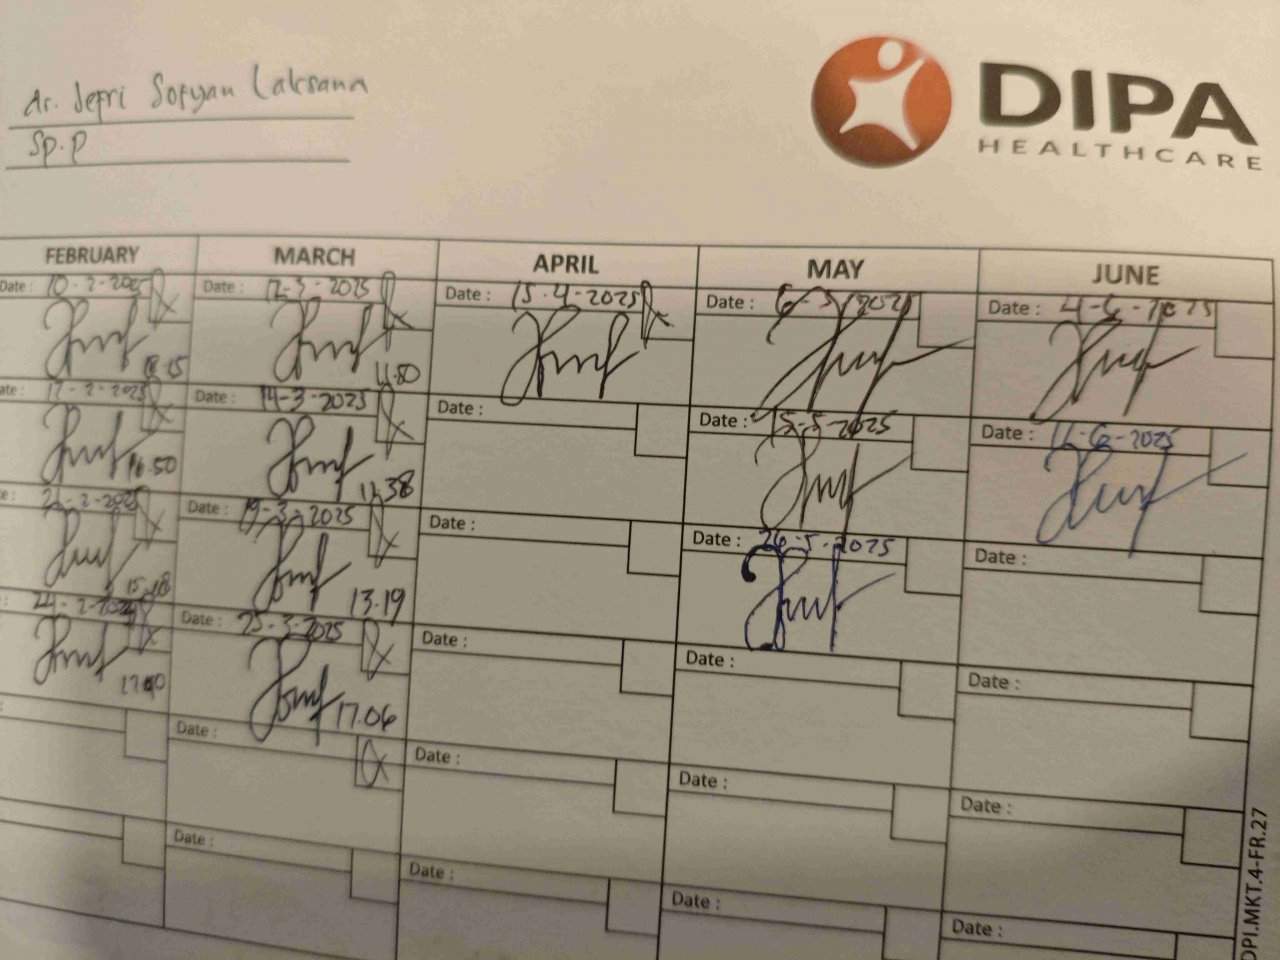 dr. Jefri Sofyan Laksana
Sp.P
DIPA
HEALTHCARE
FEBRUARY MARCH APRIL MAY JUNE
Date: 10-2-2025 Date: 12-3-2025 Date: 15-4-2025 Date: 6-5-2025 Date: 4-6-2025
11.50
Date: 17-2-2025 Date: 14-3-2025 Date: Date: 15-5-2025 Date: -6-2025
16.50 11.38
-2-2025 Date: 19-3-2025 Date: Date: 26-5-2025 Date:
15.18 13.19
-2-2025 Date: 25-3-2025 Date: Date: Date:
17.06
Date: Date: Date: Date:
Date: Date: Date: Date:
DPI.MKT.4-FR.27